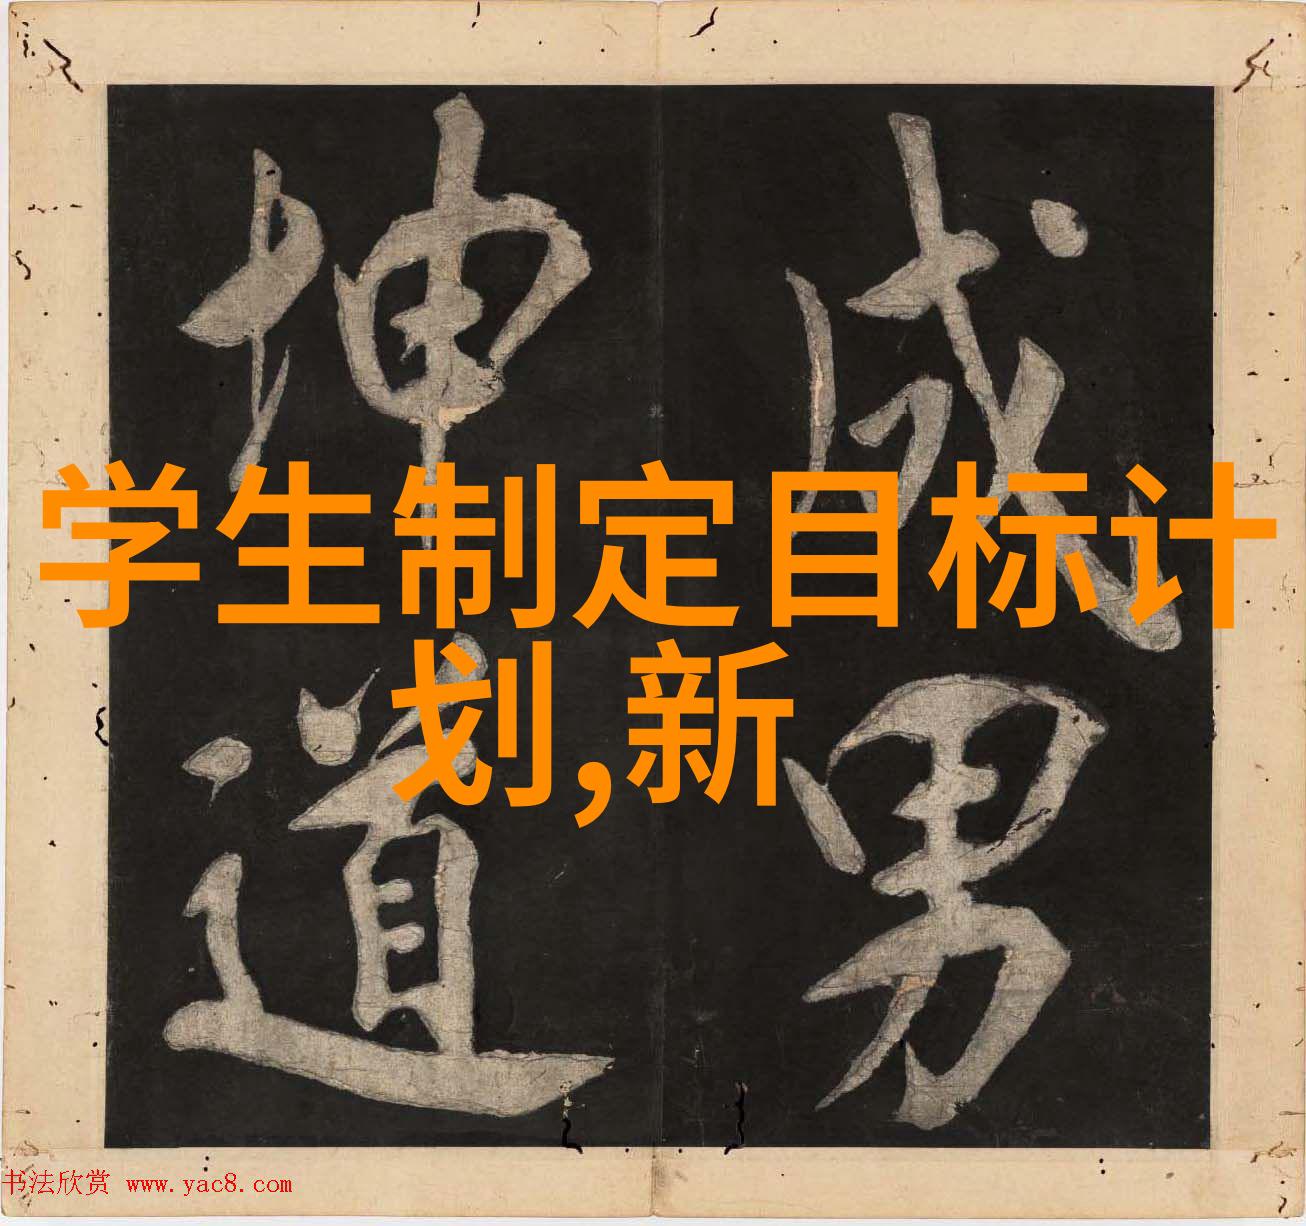 成男
坤道
学生制定目标计
划,新
书法欣赏 www.yac8.com